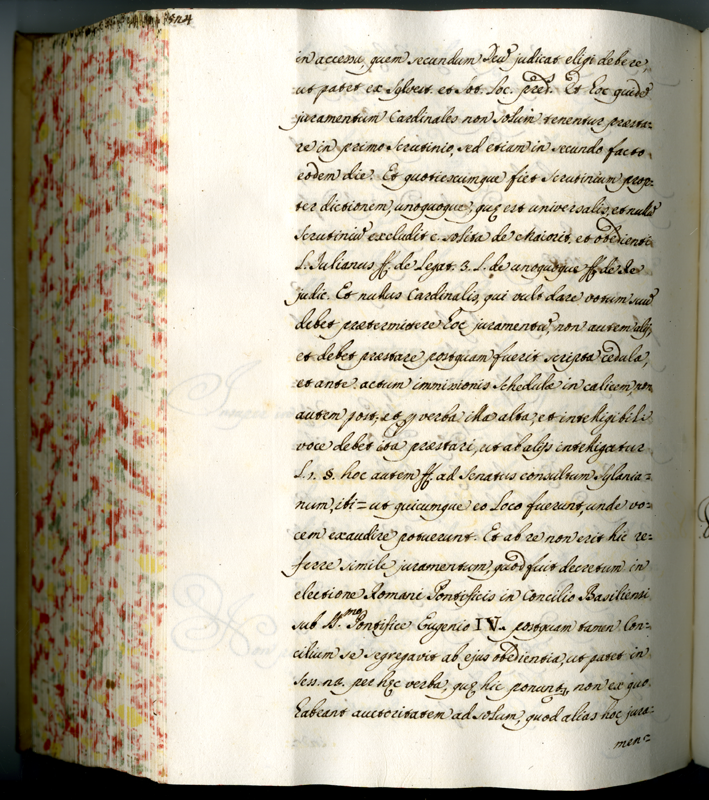 524
in accessu, quem secundum Deũ judicat eligi debere,
ut patet ex Sylvest. et Jot. Loc. pred. Et hoc quidẽ
juramentum Cardinales non solum tenentur præsta=
re in primo Scrutinio, sed etiam in secundo facto
eodem die. Et quotiescumque fiet Scrutinium prop=
ter dictionem, unoquoque, quę est universalis, et nullũ
Scrutiniũ excludit c. solita de Maiorit. et obedienti
L. Julianus ff. de Legat. 3. L. de unoquoque ff. de Re
judic. Et nullus Cardinalis, qui vult dare votum suũ
debet prætermittere hoc juramentũ, non autem alij,
et debet præstare postquam fuerit scripta cedula,
et ante actum immissionis schedulæ in calicem, non
autem post, et verba illa alta, et intelligibili
voce debet ita præstari, ut ab alijs intelligatur
L. 1. §. hoc autem ff. ad Senatus consultum Sylania=
num, ibi = ut quicumque eo Loco fuerunt, unde vo=
cem exaudire potuerunt. Et ab re non erit hic re=
ferre simile juramentum, quod fuit decretum in
electione Romani Pontificis in Concilio Basiliensi
sub S.mo Pontifice Eugenio IV. postquam tamen Con=
cilium se segregavit ab ejus obedientia, ut patet in
Sess. per hęc verba, quę hic ponunt, non ex quo
habeant auctoritatem ad solum, quod alias hoc jura=
men=